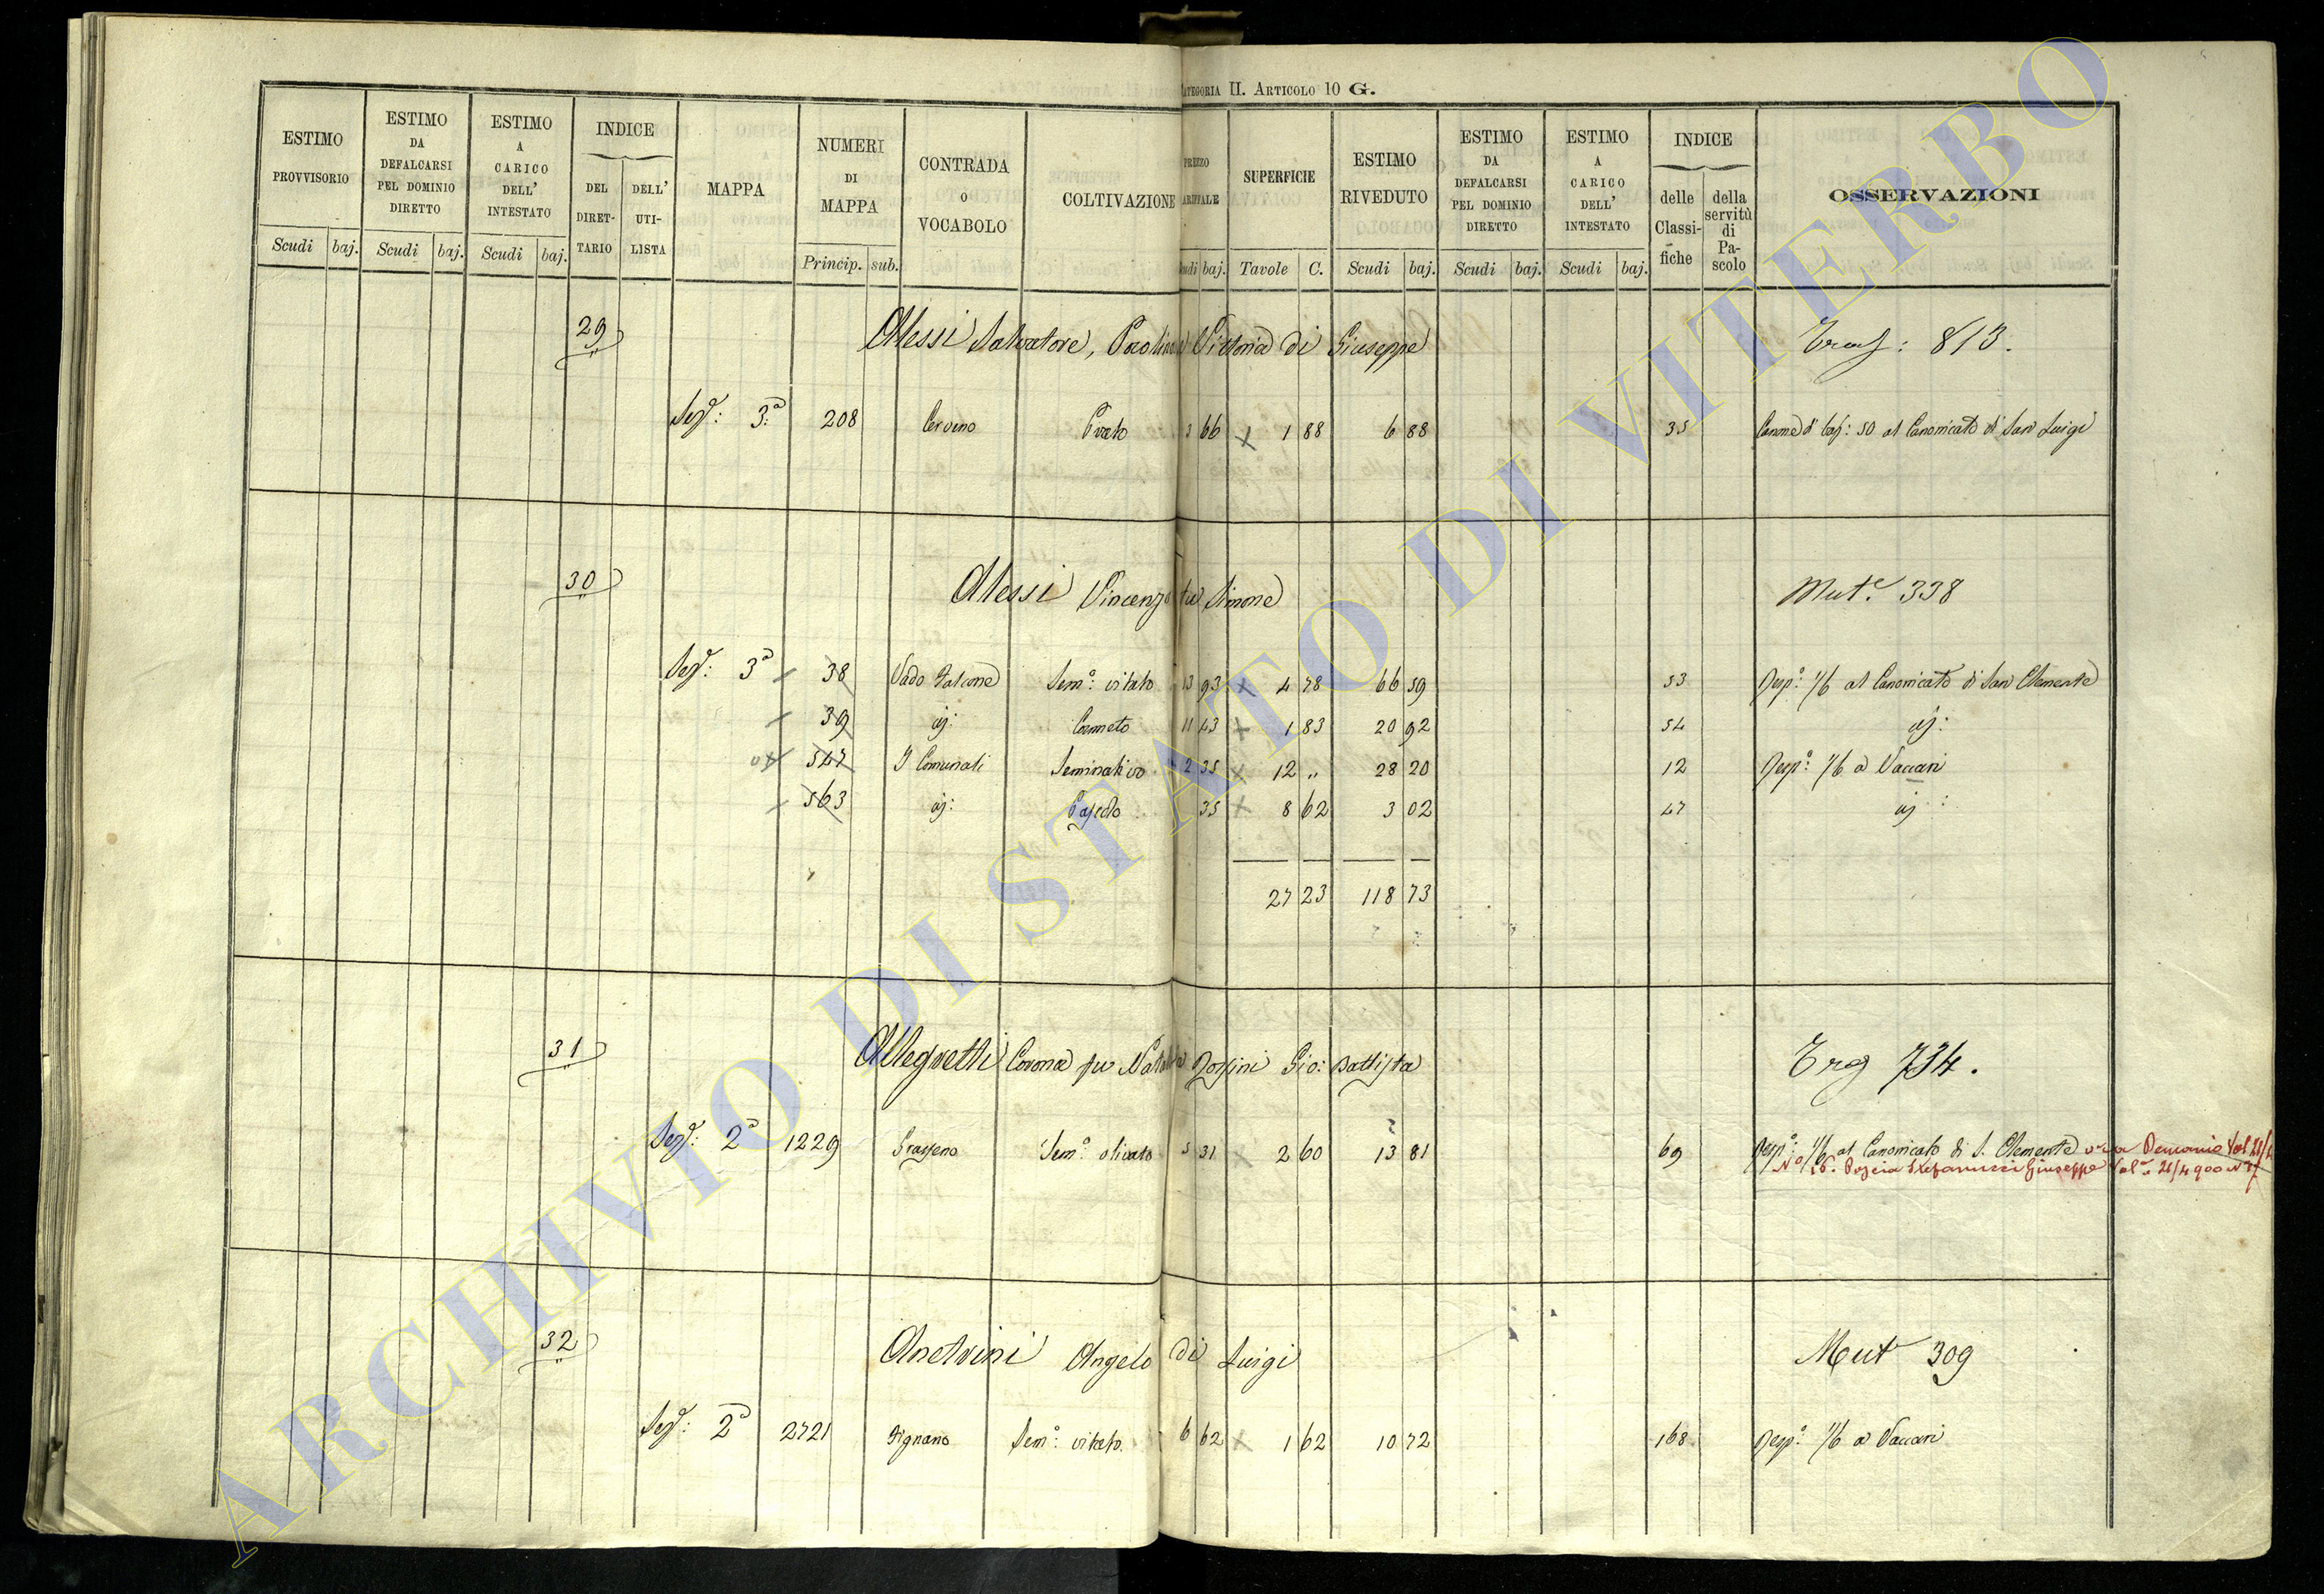 CATEGORIA II. ARTICOLO 10 G.
ESTIMO PROVVISORIO
ESTIMO DA DEFALCARSI PEL DOMINIO DIRETTO
ESTIMO A CARICO DELL' INTESTATO
INDICE
DEL DIRETTARIO
DELL' UTILISTA
MAPPA
NUMERI DI MAPPA
CONTRADA O VOCABOLO
COLTIVAZIONE
PREZZO
SUPERFICIE
ESTIMO RIVEDUTO
ESTIMO DA DEFALCARSI PEL DOMINIO DIRETTO
ESTIMO A CARICO DELL' INTESTATO
INDICE
delle Classifiche
della servitù di Pascolo
OSSERVAZIONI
Scudi baj. Scudi baj. Scudi baj. Princip. sub. baj. Tavole C. Scudi baj. Scudi baj. Scudi baj.
29 Alessi Salvatore, Paolina Vittoria di Giuseppe 813.
Sez.e: 3.a 208 Cerveno Prato 3 66 1 88 6 88 35 Canone di baj: 50 al Canonicato di San Luigi
30 Alessi Vincenzo fu Simone Mut.e 338
Sez.e: 3a 38 Vado Falcone Sem.o: vitato 13 93 4 78 66 59 53 Risp.a: 1/6 al Canonicato di San Clemente
39 ij: Canneto 11 43 1 83 20 92 54 ij:
547 I Comunali Seminativo 2 35 12 " 28 20 12 Risp.a: 1/6 a Vaccari
563 ij: 35 8 62 3 02 47 ij:
27 23 118 73
31 Allegretti fu Gio: Battista 734.
Sez.e: 2a 1229 Grasseno Sem.o: olivato 5 31 2 60 13 81 69 Risp.a: 1/6 al Canonicato di S. Clemente ora Demanio
Poscia Stefanucci Giuseppe
32 Angelo di Luigi Mut 309
Sez.e: 2a 2721 Fignano Sem.o: vitato 6 62 1 62 10 72 168 Risp.a: 1/6 a Vaccari
ARCHIVIO DI STATO DI VITERBO